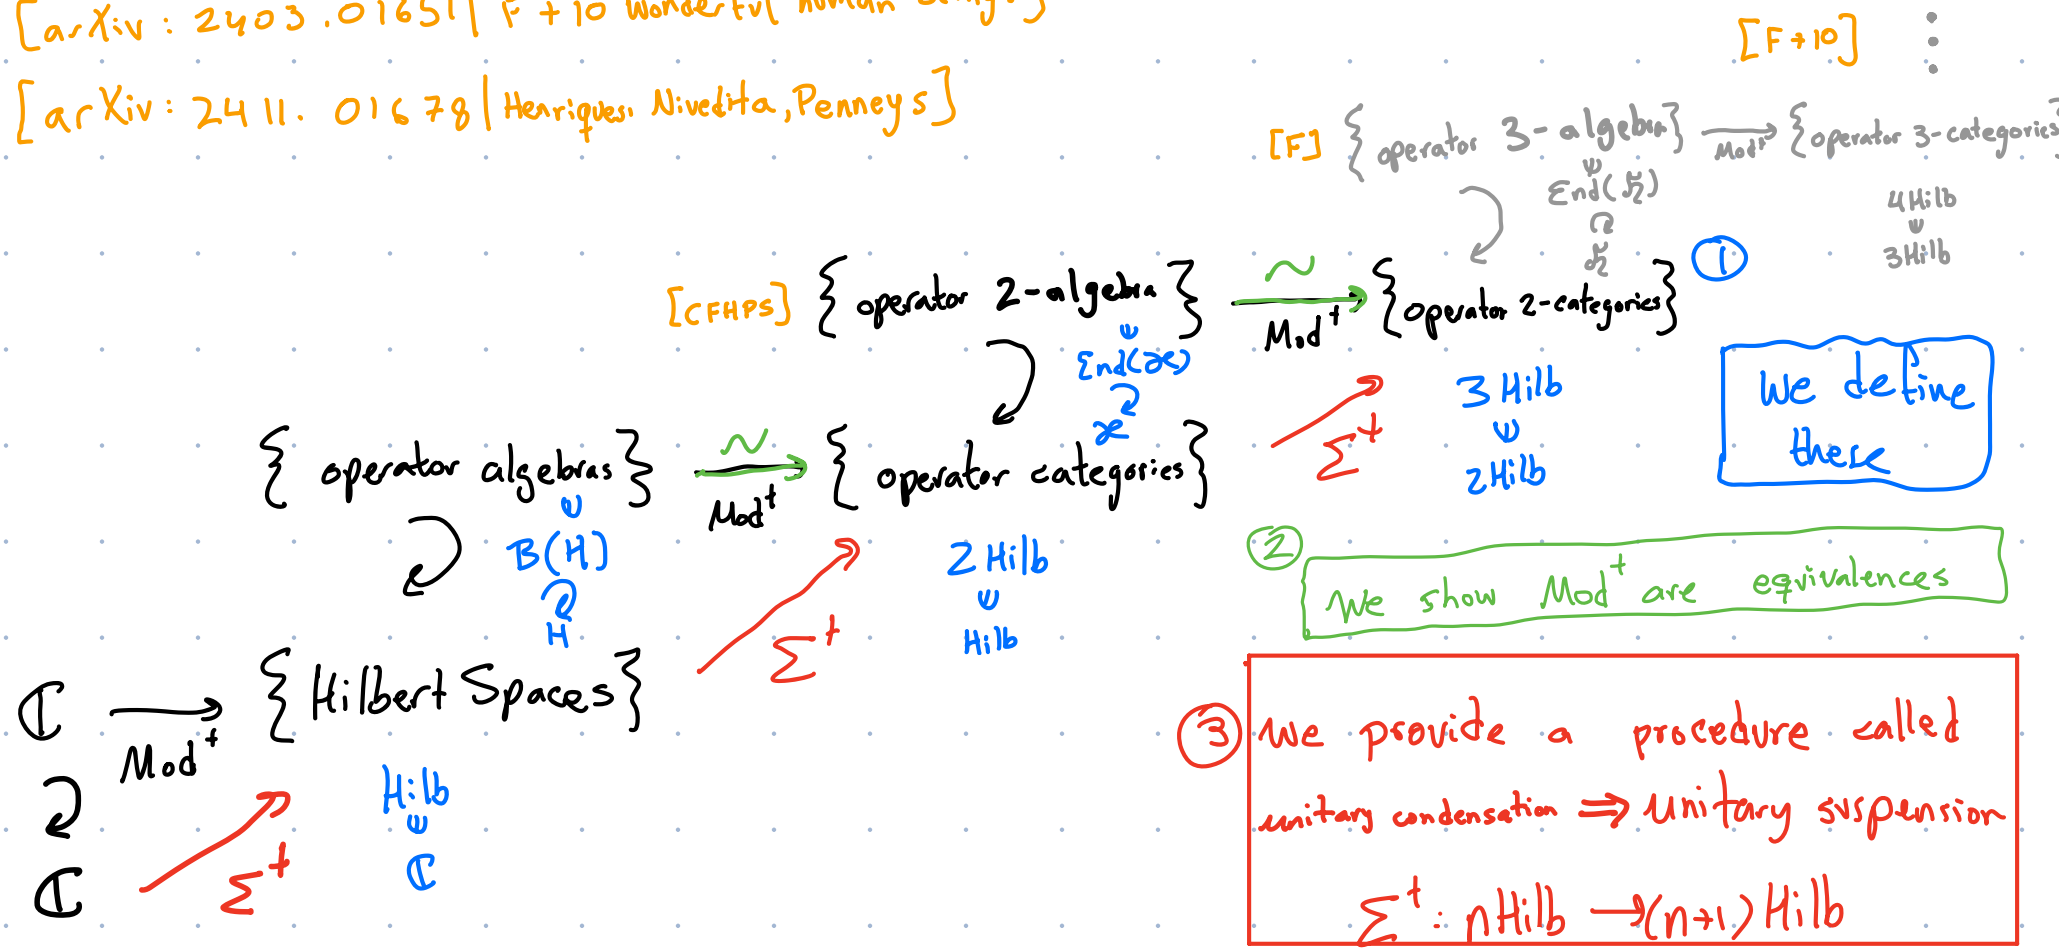 [arXiv: 2403.01651 | F + 10 wonderful human beings]
[F+10]
[arXiv: 2411.01678 | Henriques, Nivedita, Penneys]
[F] { operator 3-algebra } Mod† { operator 3-categories
End( )
4Hilb
3Hilb
①
[CFHPS] { operator 2-algebra } ~ Mod† { operator 2-categories }
End(𝒳)
𝒳
Σ†
3Hilb
2Hilb
We define
these
{ operator algebras } ~ Mod† { operator categories }
B(H)
H
Σ†
2Hilb
Hilb
②
We show Mod† are equivalences
ℂ Mod† { Hilbert Spaces }
ℂ
Σ†
Hilb
ℂ
③ We provide a procedure called
unitary condensation ⇒ unitary suspension
Σ† : nHilb → (n+1)Hilb